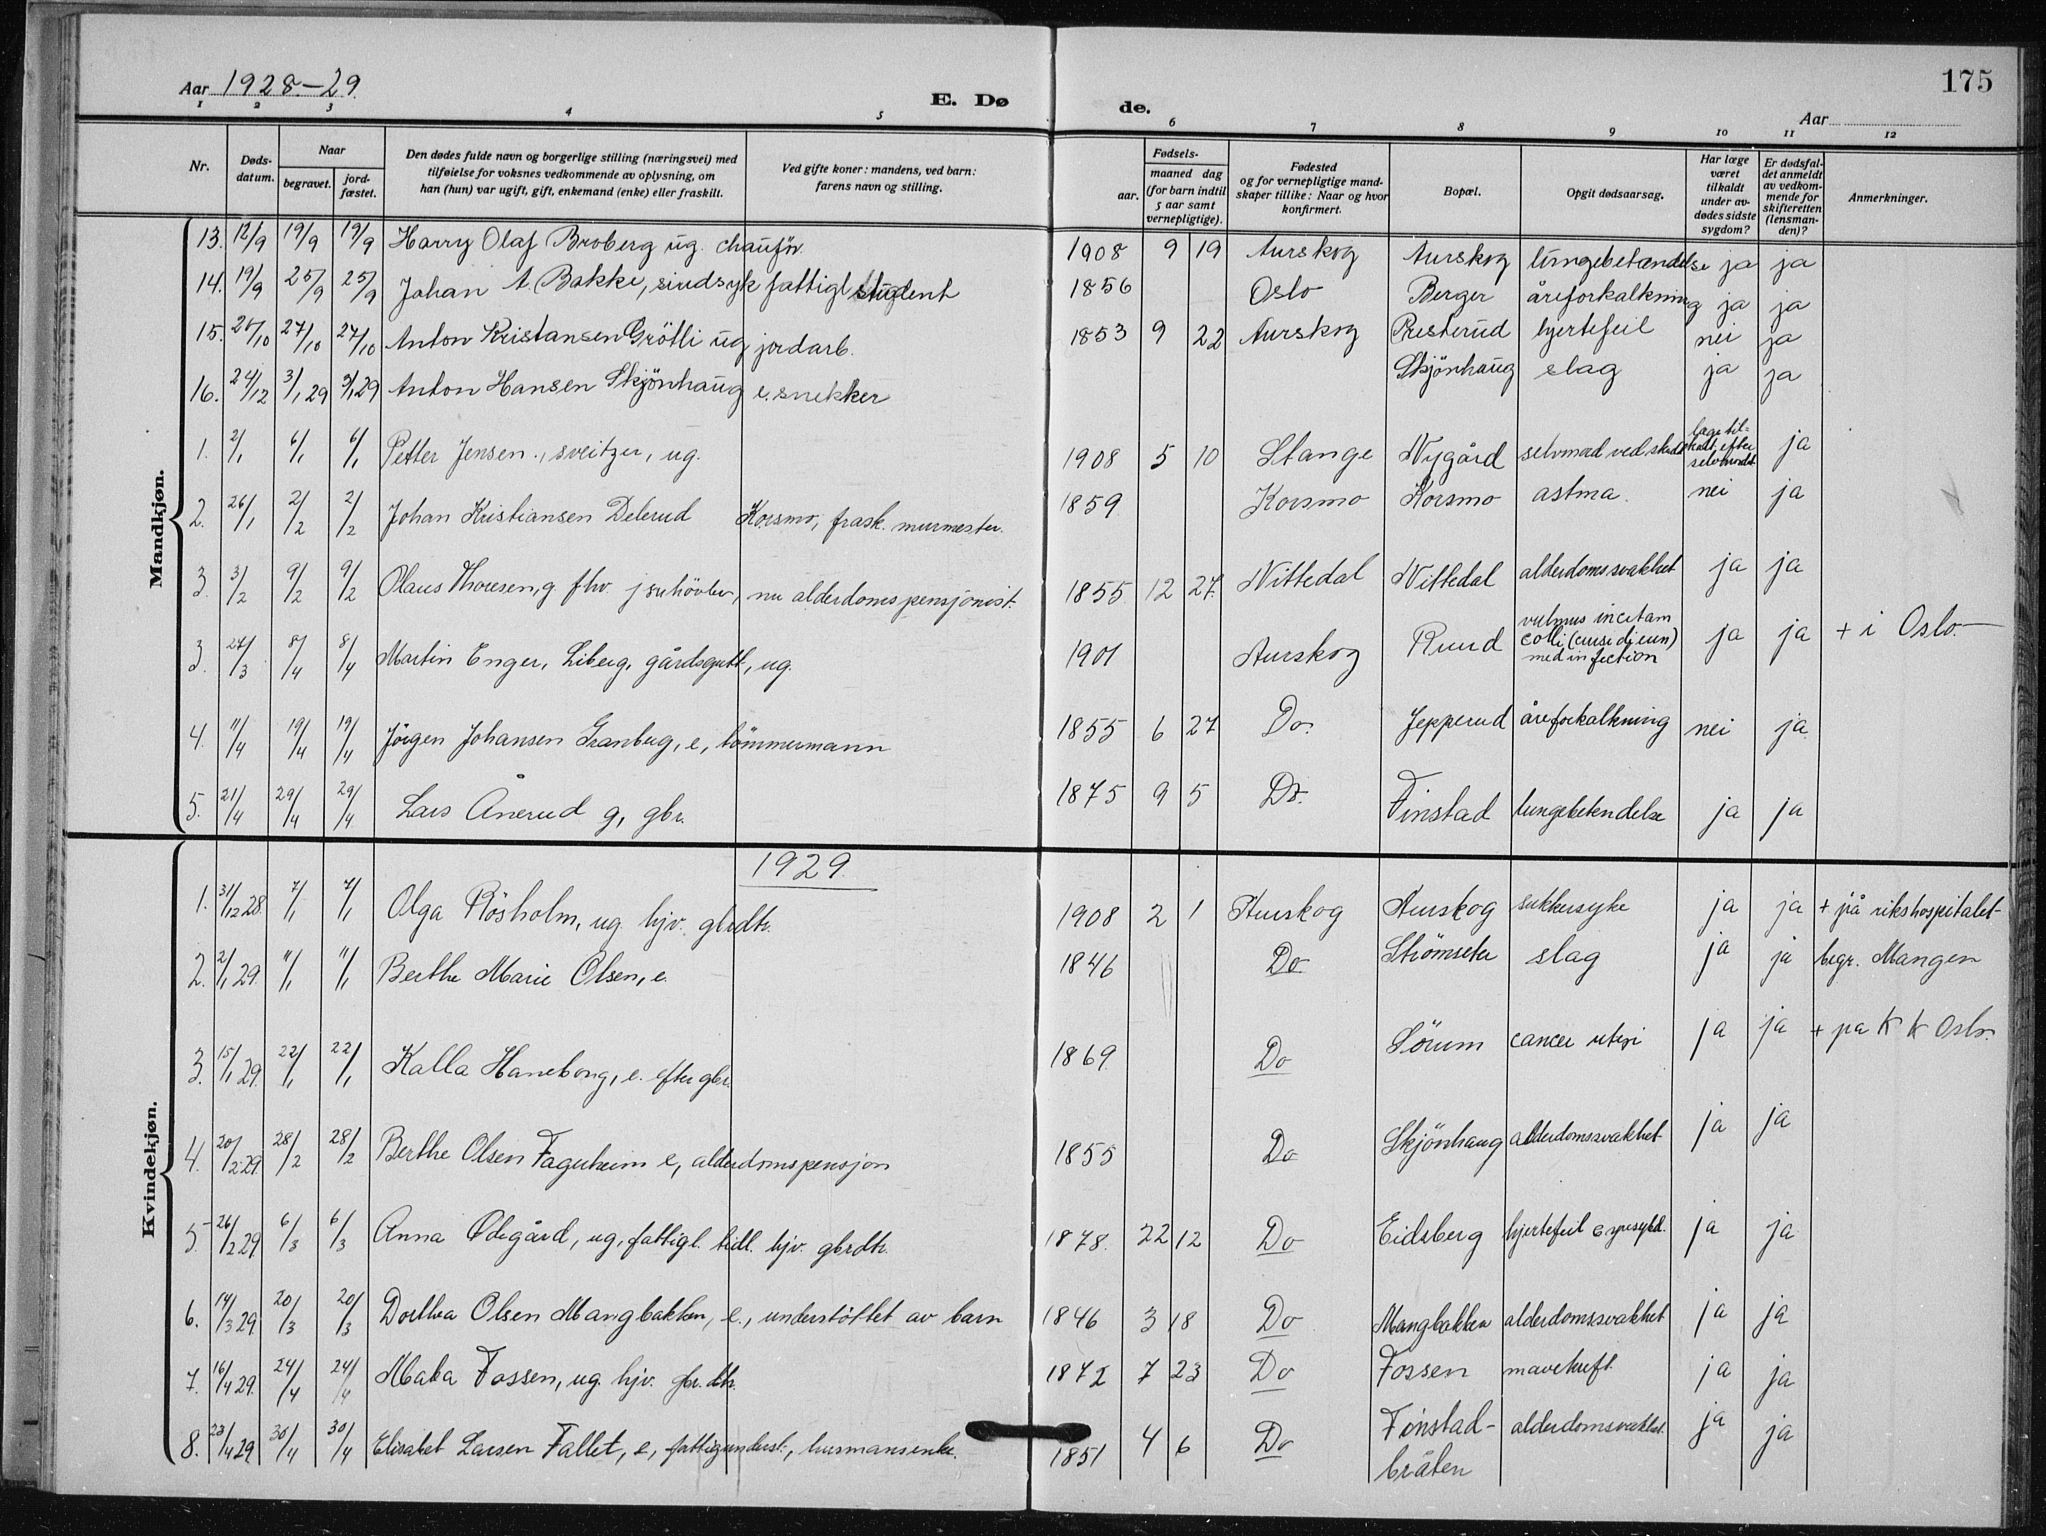 175
Aar 1928.-29.
E. Dø de.
Aar
1 2 3 4 5 6 7 8 9 10 11 12
Nr. Døds-datum. Naar begravet. jord-fæstet. Den dødes fulde navn og borgerlige stilling (næringsvei) med tilføielse for voksnes vedkommende av oplysning, om han (hun) var ugift, gift, enkemand (enke) eller fraskilt. Ved gifte koner: mandens, ved barn: farens navn og stilling. Fødsels- aar. maaned dag (for barn indtil 5 aar samt vernepligtige). Fødested og for vernepligtige mand-skaper tillike: Naar og hvor konfirmert. Bopæl. Opgit dødsaarsag. Har læge været tilkaldt under av-dødes sidste sygdom? Er dødsfal-det anmeldt av vedkom-mende for skifteretten (lensman-den)? Anmerkninger.
Mandkjøn.
13. 12/9 19/9 19/9 Harry Olaf Broberg ug. chaufør. 1908 9 19 Aurskog Aurskog lungebetændelse ja ja
14. 19/9 25/9 25/9 Johan A. Bakke, sindsyk fattigl student 1856 Oslo Berger åreforkalkning ja ja
15. 20/10 27/10 27/10 Anton Kristansen Grötli ug jordarb. 1853 9 22 Aurskog Presterud hjertefeil nei ja
16. 24/12 3/1 29 3/1 29 Anton Hansen Skjönhaug e. snekker Skjönhaug slag ja ja
1. 2/1 6/1 6/1 Petter Jensen., sveitzer, ug. 1908 5 10 Stange Nygård selvmord ved skudd læge til-kaldt efter selvmordet ja
2. 26/1 2/2 2/2 Johan Kristiansen Delerud Korsmo, frask. murmester. 1859 Korsmo Korsmo astma. nei ja
3. 3/2 9/2 9/2 Olaus Thoresen, g. fhv. jernhövler, nu alderdomspensjonist. 1855 12 27. Nittedal Nittedal alderdomssvakhet ja ja
3. 27/3 8/4 8/4 Martin Enger, Liberg, gårdsgutt, ug. 1901 Aurskog Ruud vulnus incitam colli (cuisidium) med infection ja ja + i Oslo.
4. 11/4 19/4 19/4 Jörgen Johansen Granberg, e, tömmermann 1855 6 27 Do. Jepperud åreforkalkning nei ja
5. 21/4 29/4 29/4 Lars Ånerud g, gbr. 1875 9 5 Do. Finstad lungebetendelse ja ja
Kvindekjøn.
1929.
1. 31/12 28. 7/1 7/1 Olga Rösholm, ug. hjv. gbrdtr. 1908 2 1 Aurskog Aurskog sukkersyke ja ja + på rikshospitalet
2. 2/1 29. 11/1 11/1 Berthe Marie Olsen, e. 1846 Do Strömseter slag ja ja begr. Mangen
3. 15/1 29. 22/1 22/1 Kalla Haneborg, e. efter gbr. 1869 Do Sörum cancer uteri ja ja + pa K K Oslo.
4. 20/2 29. 28/2 28/2 Berthe Olsen Fagerheim e, alderdomspensjon 1855 Do Skjönhaug alderdomssvakhet ja ja
5. 26/2 29. 6/3 6/3 Anna Ödegård, ug, fattigl. tidl. hjv. gbrdtr. 1878. 22 12 Do Eidsberg hjertefeil ja ja
6. 14/3 29 20/3 20/3 Dorthea Olsen Mangbakken, e., understöttet av barn 1846 3 18 Do Mangbakken alderdomssvakhet ja ja
7. 16/4 29. 24/4 24/4 Maba Fossen, ug. hjv. gbr. dtr. 1872 7 23 Do Fossen mavekreft. ja ja
8. 23/4 29 30/4 30/4 Elisabet Larsen Fallet, e, fattigunderst., husmansenke. 1851 4 6 Do Finstad-bråten alderdomssvakhet. ja ja